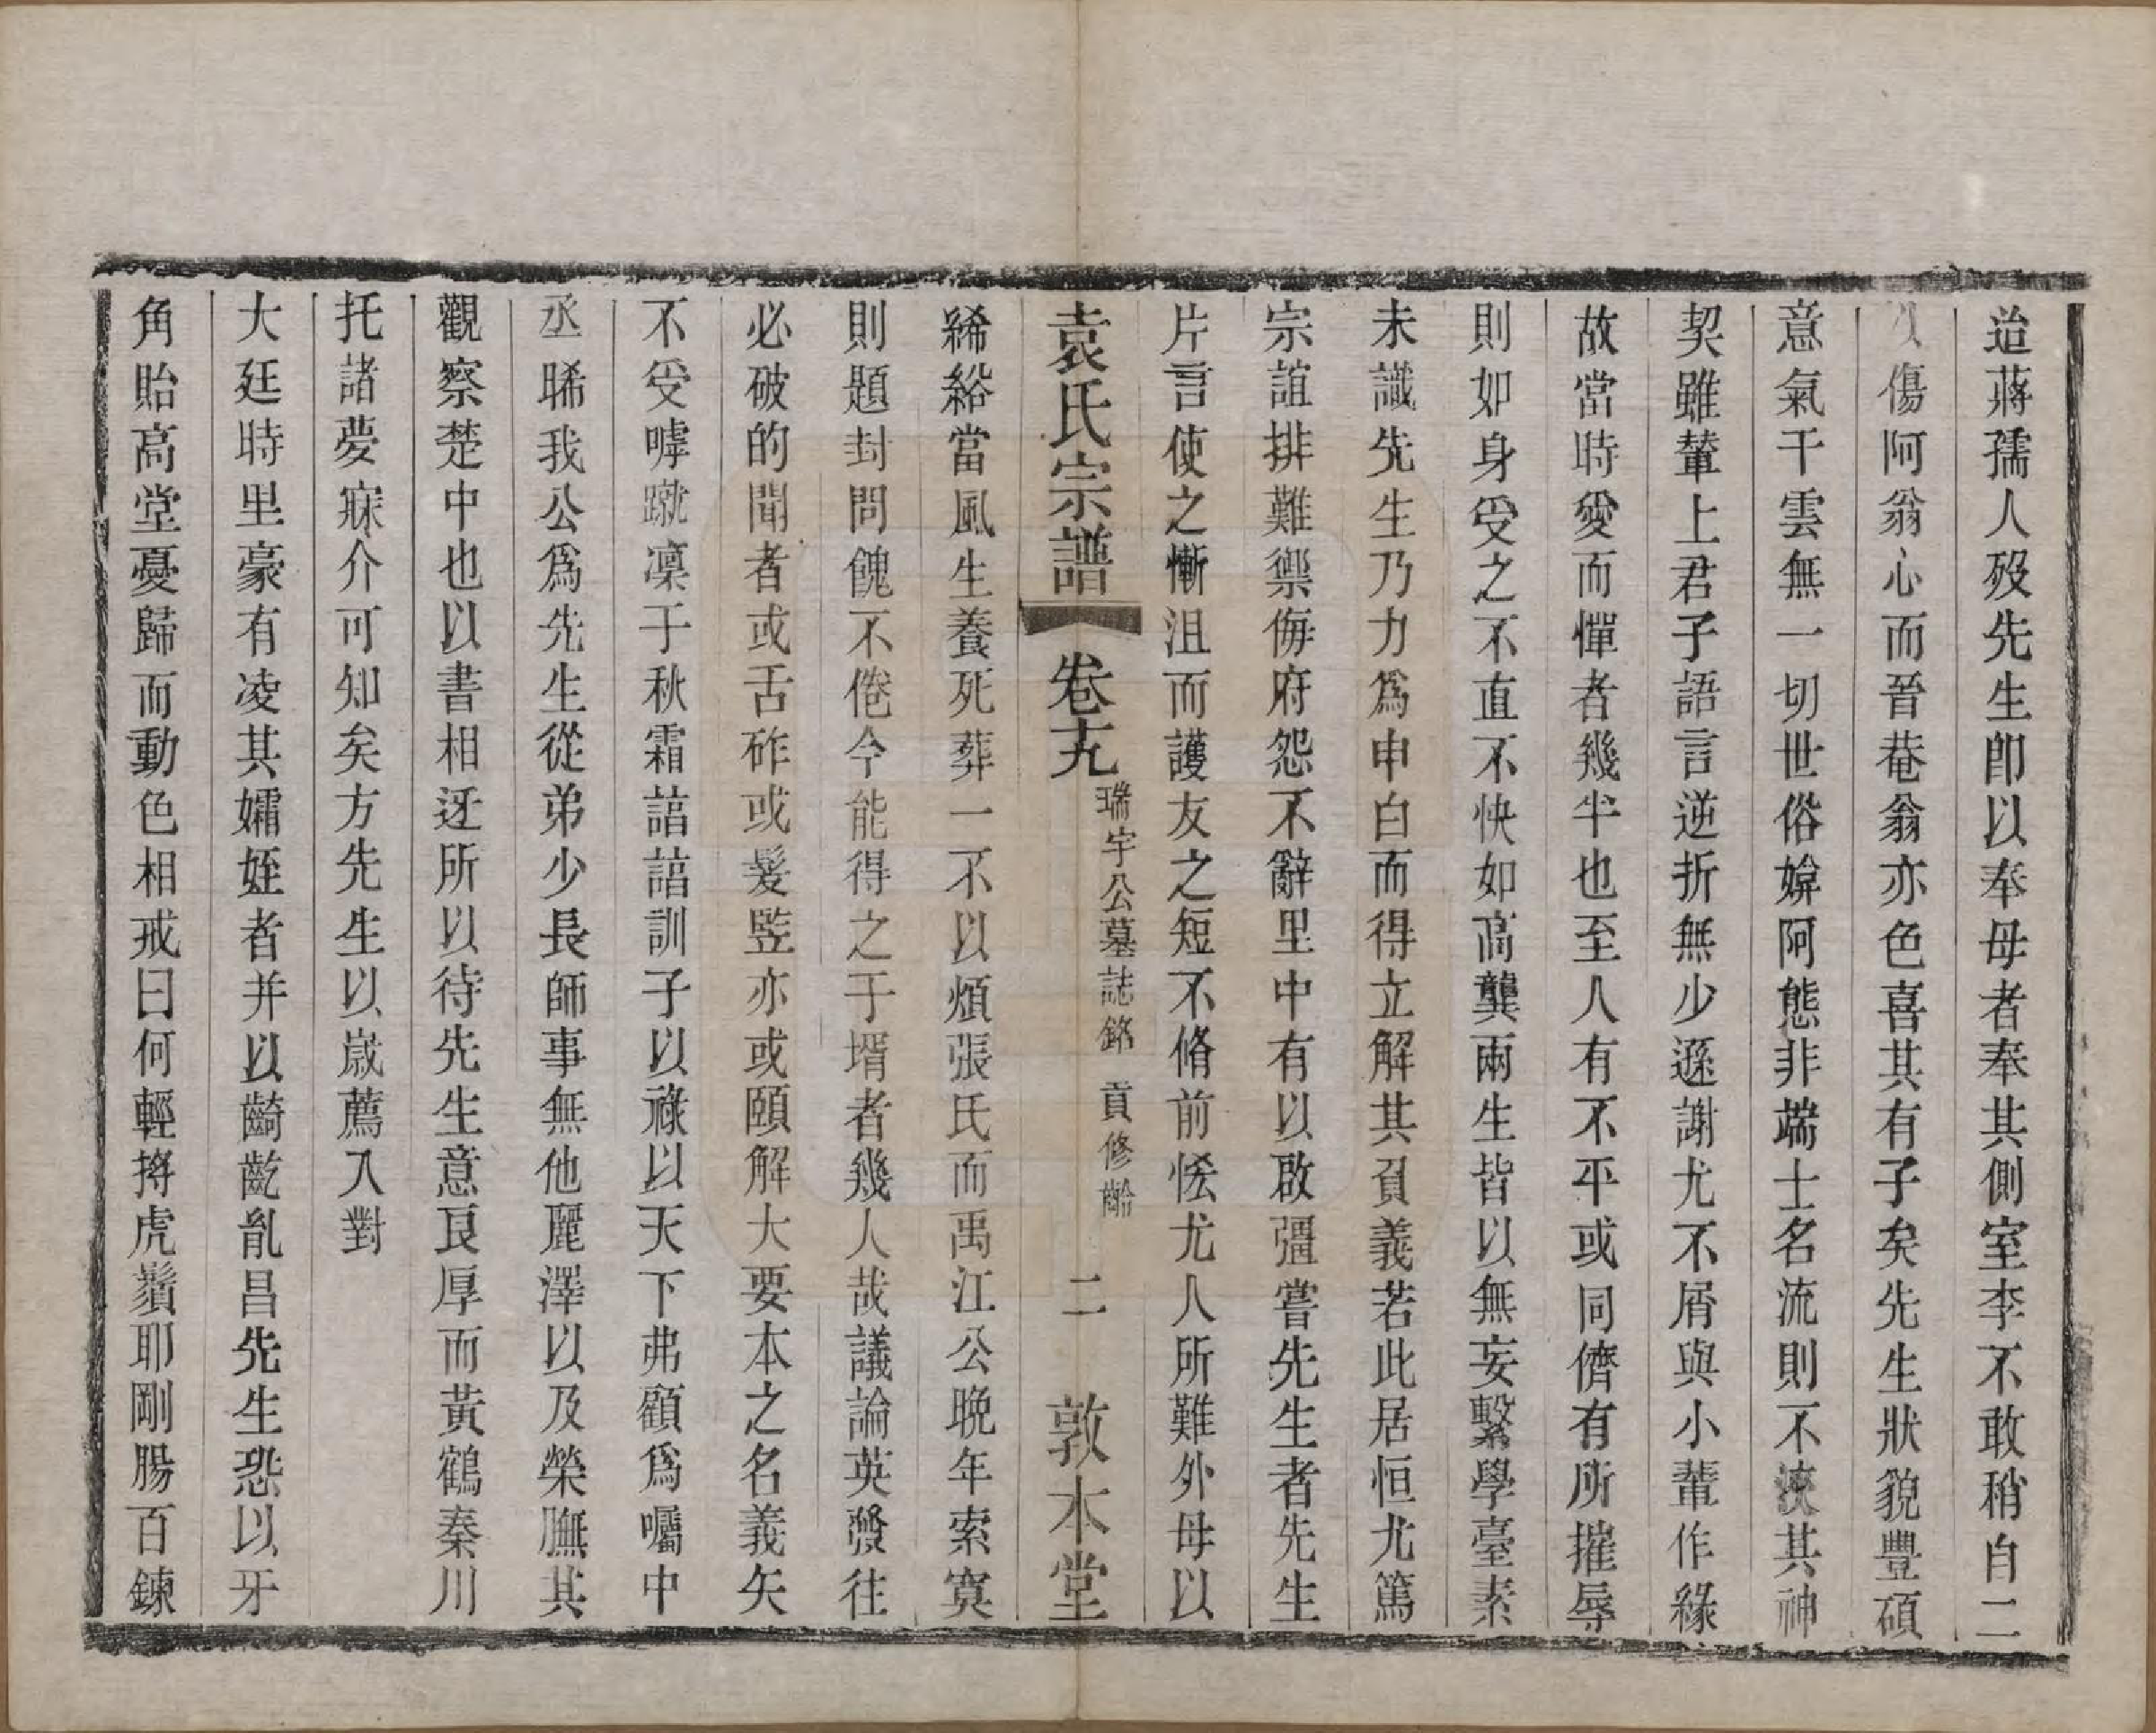 迨蔣孺人歿先生卽以奉母者奉其側室李不敢稍自二
傷阿翁心而晉菴翁亦色喜其有子矣先生狀貌豐碩
意氣干雲無一切世俗媕阿態非端士名流則不浹其神
契雖輦上君子語言逆折無少遜謝尤不屑與小輩作緣
故當時愛而憚者幾半也至人有不平或同儕有所摧辱
則如身受之不直不快如高龔兩生皆以無妄繫學臺素
未識先生乃力爲申白而得立解其負義若此居恒尤篤
宗誼排難禦侮府怨不辭里中有以啟彊嘗先生者先生
片言使之慚沮而護友之短不脩前恡尤人所難外母以
袁氏宗譜 卷十九 瑞宇公墓誌銘 貢修齡 二 敦本堂
絺綌當風生養死葬一不以煩張氏而禹江公晩年索寞
則題封問餽不倦今能得之于壻者幾人哉議論英發往
必破的聞者或舌砟或髮竪亦或頤解大要本之名義矢
不受嘑蹴凜于秋霜諳諳訓子以祿以天下弗顧爲囑中
丞晞我公爲先生從弟少長師事無他麗澤以及榮膴其
觀察楚中也以書相迓所以待先生意良厚而黃鶴秦川
托諸夢寐介可知矣方先生以歲薦入對
大廷時里豪有凌其孀姪者并以齮齕胤昌先生恐以牙
角貽高堂憂歸而動色相戒曰何輕捋虎鬚耶剛腸百鍊